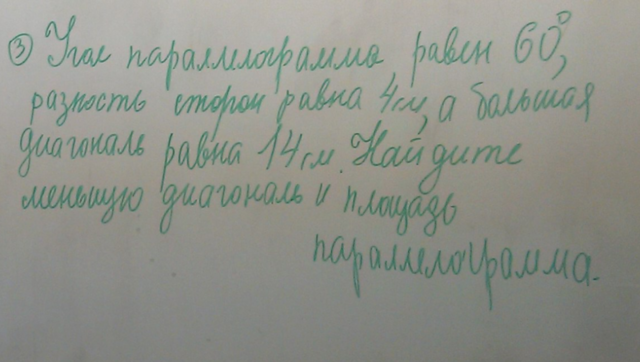 ③ Угол параллелограмма равен 60°,
разность сторон равна 4см, а большая
диагональ равна 14см. Найдите
меньшую диагональ и площадь
параллелограмма.